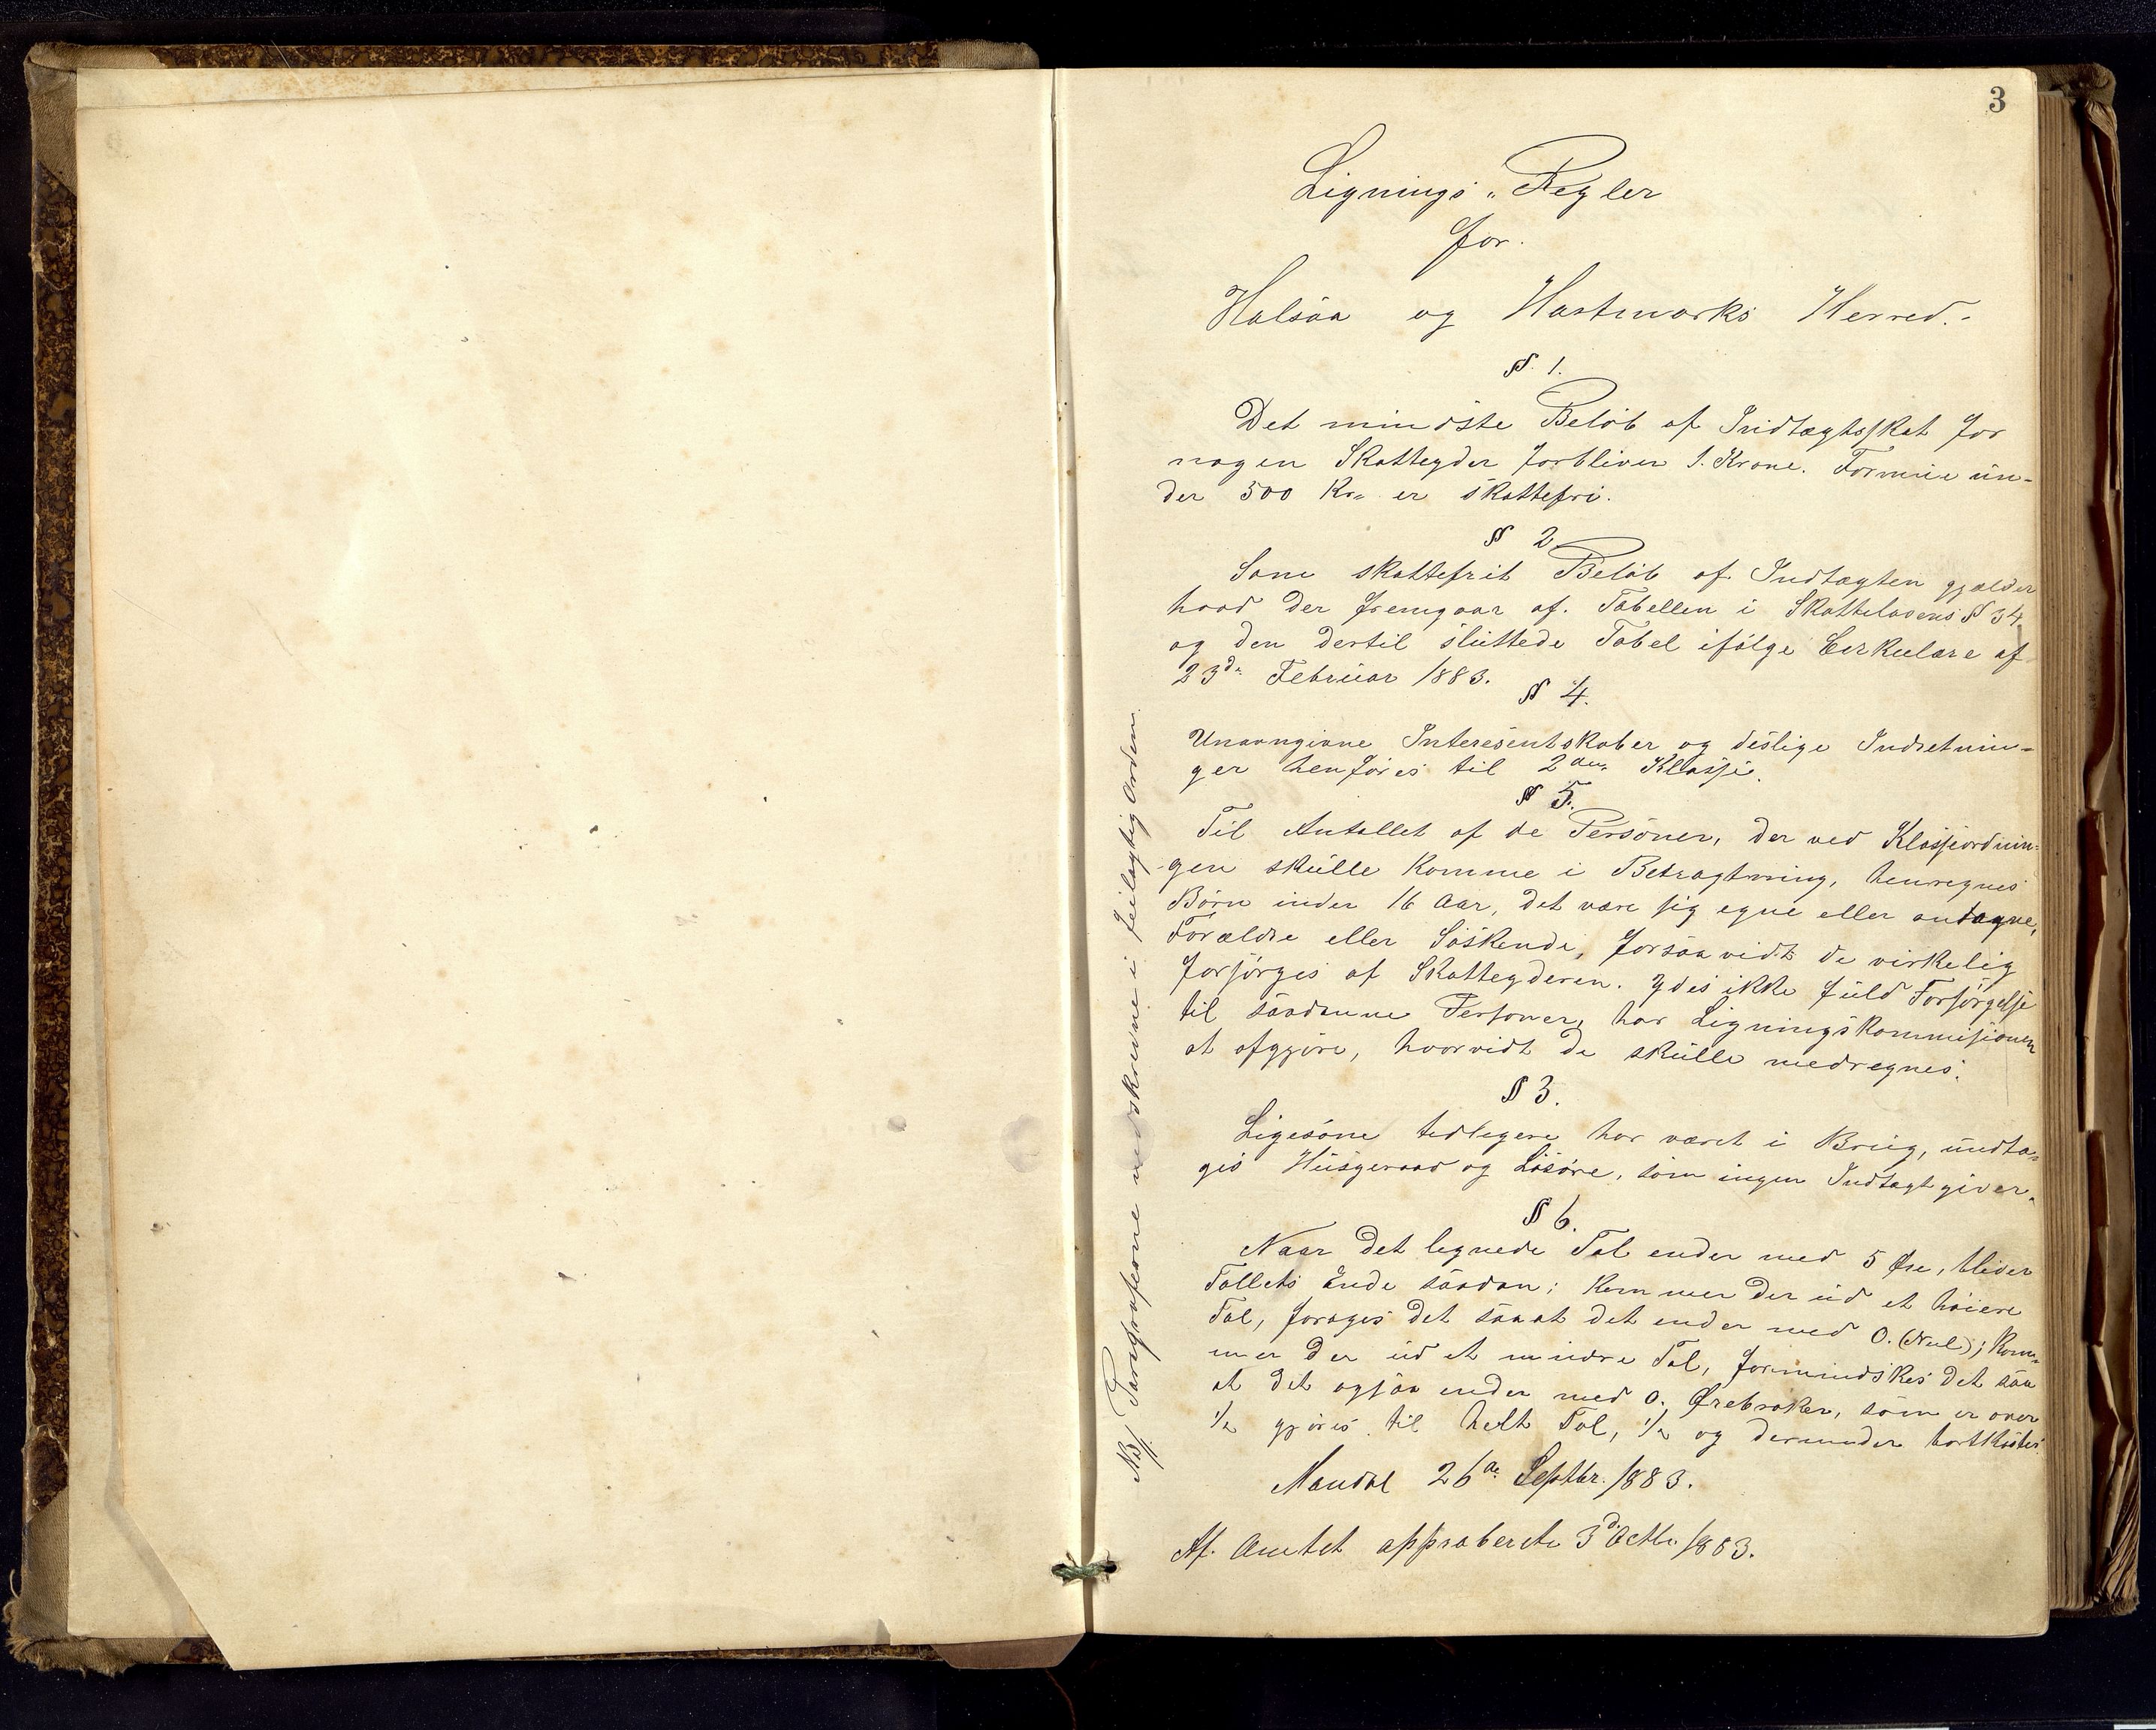 3
Lignings„Regler
for.
Halsaa og Hartmarks Herred.-
§. 1.
Det mindste Beløb af Indtægtsskat for
nogen Skatteyder forbliver 1. Krone. Formue un-
der 500 Kr. er skattefri.
§ 2
Som skattefrit Beløb af Indtægten gjælder
hvad der fremgaar af Tabellen i Skattelovens § 34
og den dertil sluttede Tabel ifølge Cirkulære af
23de Februar 1883.
§ 4.
Unavngivne Interesentskaber og deslige Indretnin-
ger henføres til 2den Klasse.
§ 5.
Til Antallet af de Personer, der ved Klasseordnin-
-gen skulle komme i Betragtning, henregnes
Børn under 16 Aar, det være sig egne eller antagne,
Forældre eller Søskende, forsaavidt de virkelig
forsørges af Skatteyderen. Ydes ikke fuld Forsørgelse
til saadanne Personer, har Ligningskommisionen
at afgjøre, hvorvidt de skulle medregnes.
§ 3.
Ligesom tidligere har været i Brug, undta-
ges Husgeraad og Løsøre, som ingen Indtægt giver.
§ 6.
Naar det lignede Tal ender med 5 Øre, bliver
Tallets Ende saadan; kommer der ud et høiere
Tal, forøges det saa at det ender med 0. (Nul); kom-
mer der ud et mindre Tal, formindskes det saa
at det ogsaa ender med 0. Ørebrøker, som er over
1/2 gjøres til helt Tal, 1/2 og derunder bortkastes.
Mandal 26de Septbr. 1883.
Af Amtet approberede 3d Octbr. 1883.
NB/ Paragraferne nedskrevne i feilagtig Orden.